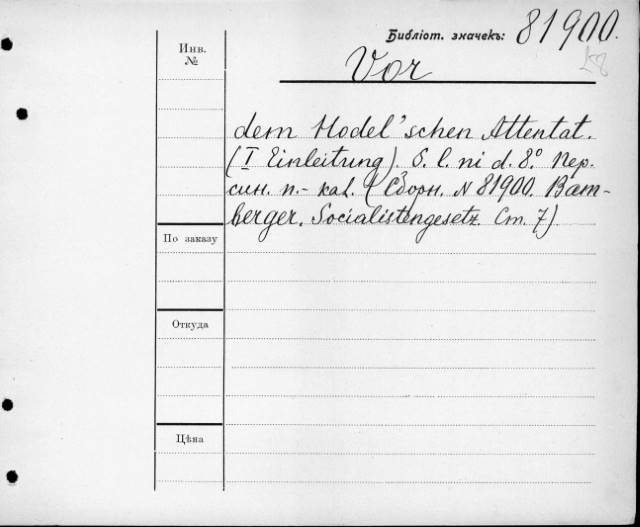 Библіот. значекъ: 81900.
Инв. №
Vor
dem Hodel'schen Attentat.
(I Einleitung). S. l. ni d. 8.º Пер.
син. п.- kal. (Сборн. N 81900. Bam-
berger. Socialistengesetz. Ст. 7)
По заказу
Откуда
Цѣна